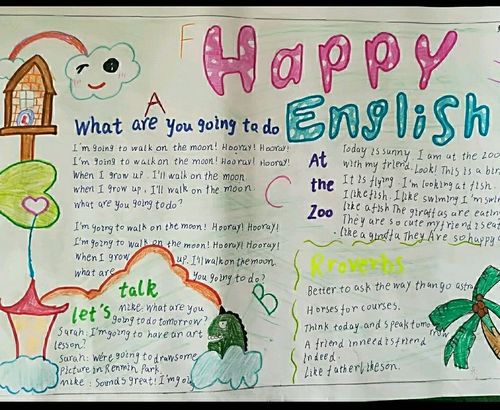 F
Happy
English
A
What are you going to do
I'm going to walk on the moon! Hooray! Hooray!
I'm going to walk on the moon! Hooray! Hooray!
When I grow up. I'll walk on the moon
when I grow up. I'll walk on the moon.
what are you going to do?
I'm going to walk on the moon! Hooray! Hooray!
I'm going to walk on the moon! Hooray! Hooray!
When I grow up. I'll walk on the moon.
what are you going to do?
C
At
the
Zoo
Today is sunny. I am at the zoo
with my friend. Look! This is a bir
It is flying. I'm looking at fish.
I like fish. I like swiming I'm swim
like a fish The giraffas are eatin
They are so cute my friend is eat
like a giraffa They Are so happy
B
let's talk
Mike: what are you
going to do tomorrow?
Sarah: I'm going to have an art
lesson?
Sarah: We're going to draw some
Picture in Renmin Park.
Mike: Sounds great! I'm go
Rroverbs
Better to ask the way than go astr
Horses for courses.
Think today and speak tomorrow
A friend in need is friend
indeed.
Like father like son.